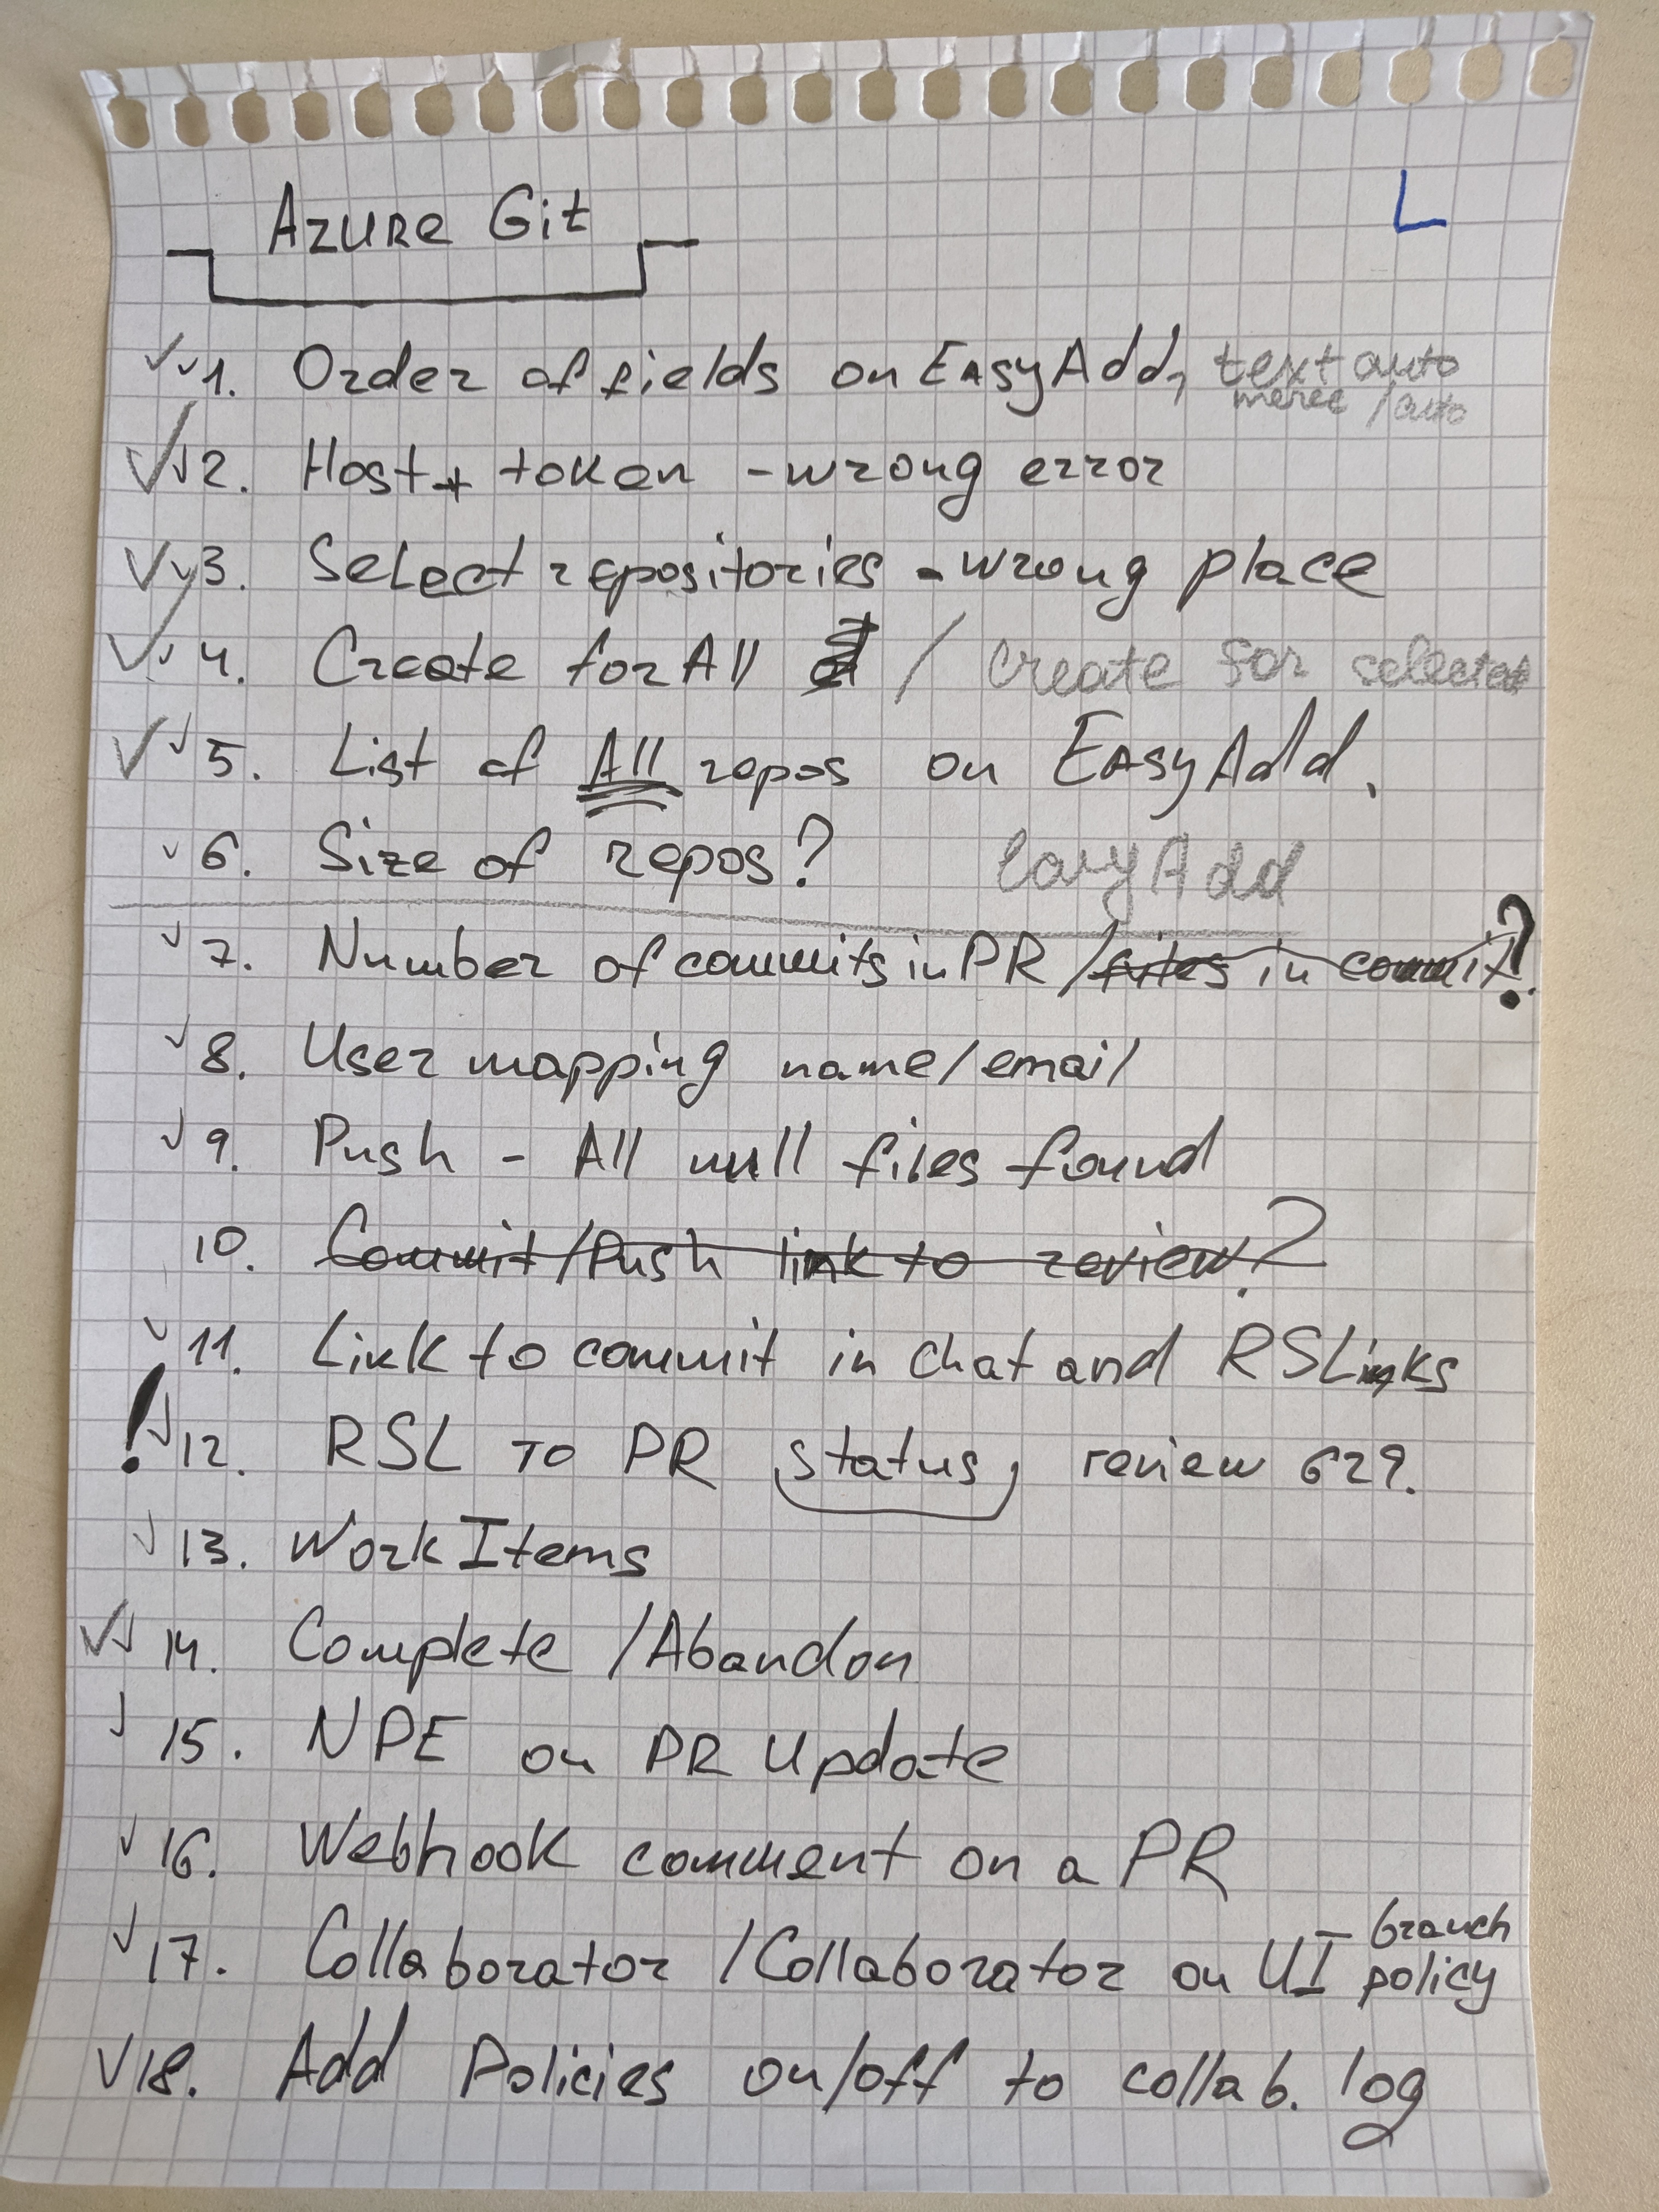 Azure Git
L
✓✓1. Order of fields on EasyAdd, text auto
/auto
✓✓2. Host + token - wrong error
✓✓3. Select repositories - wrong place
✓✓4. Create for All / Create for selected
✓✓5. List of All repos on EasyAdd.
✓6. Size of repos? EasyAdd
✓7. Number of commits in PR / files in commit?
✓8. User mapping name/email
✓9. Push - All null files found
10. Commit/Push link to review?
✓11. Link to commit in chat and RSLinks
!✓12. RSL TO PR status, review 629.
✓13. Work Items
✓✓14. Complete /Abandon
✓15. NPE on PR Update
✓16. Webhook comment on a PR
✓17. Collaborator /Collaborator on UI - branch policy
✓18. Add Policies on/off to collab. log